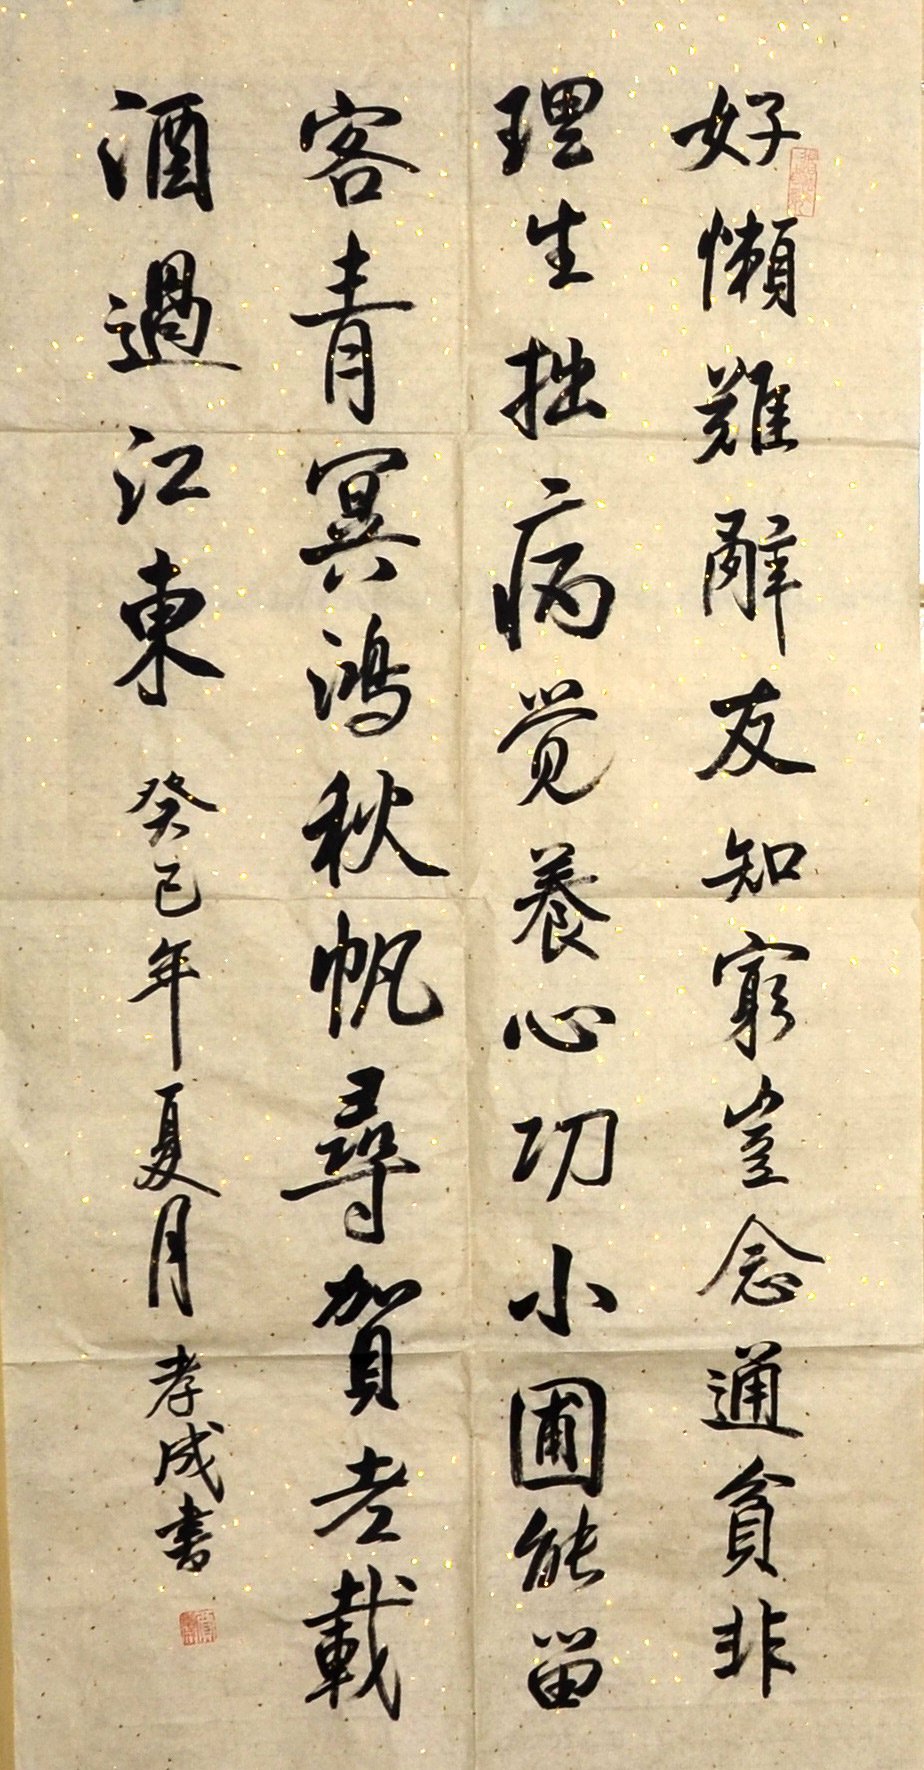 好懶難辭友知窮豈念通貧非
理生拙病覺養心功小圃能留
客青冥鴻秋帆尋賀老載
酒過江東癸巳年夏月孝成書